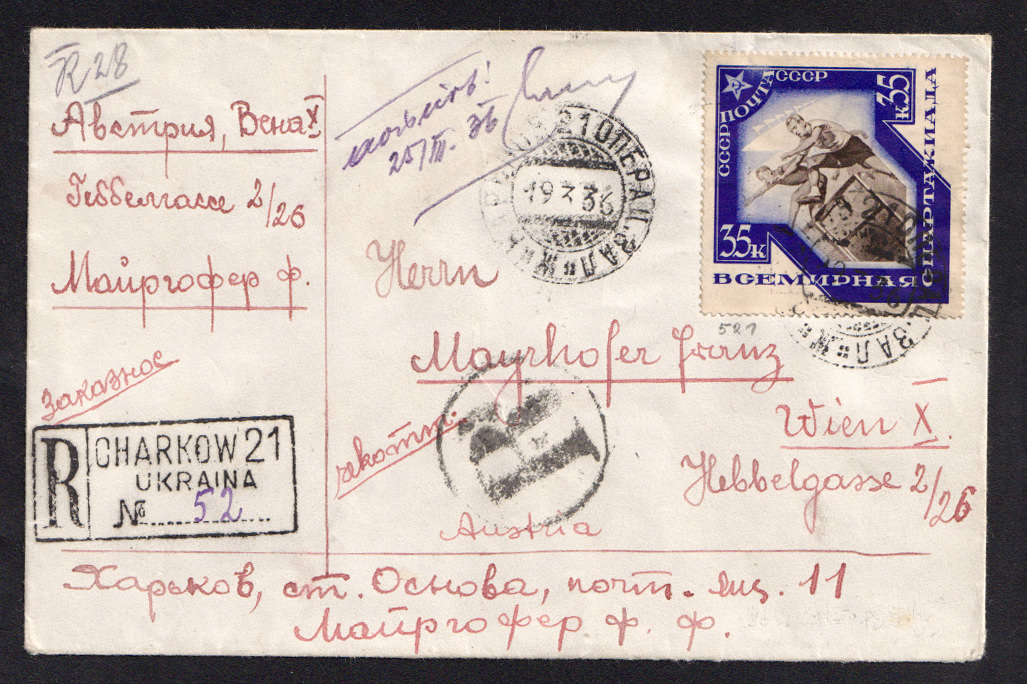 R 28
Австрия, Вена X
Геббелгассе 2/26
Майргофер ф.
заказное
R
CHARKOW 21
UKRAINA
№ 52
25/III. 36
21 ОПЕРАЦ. ЗАЛ
19 3 36
СССР ПОЧТА СССР
35 к
35 к
ВСЕМИРНАЯ СПАРТАКИАДА
521
ЗАЛ
Herrn
Mayrhofer Franz
Wien X.
Hebbelgasse 2/26
Austria
R
Харьков, ст. Основа, почт. ящ. 11
Майргофер. ф. ф.